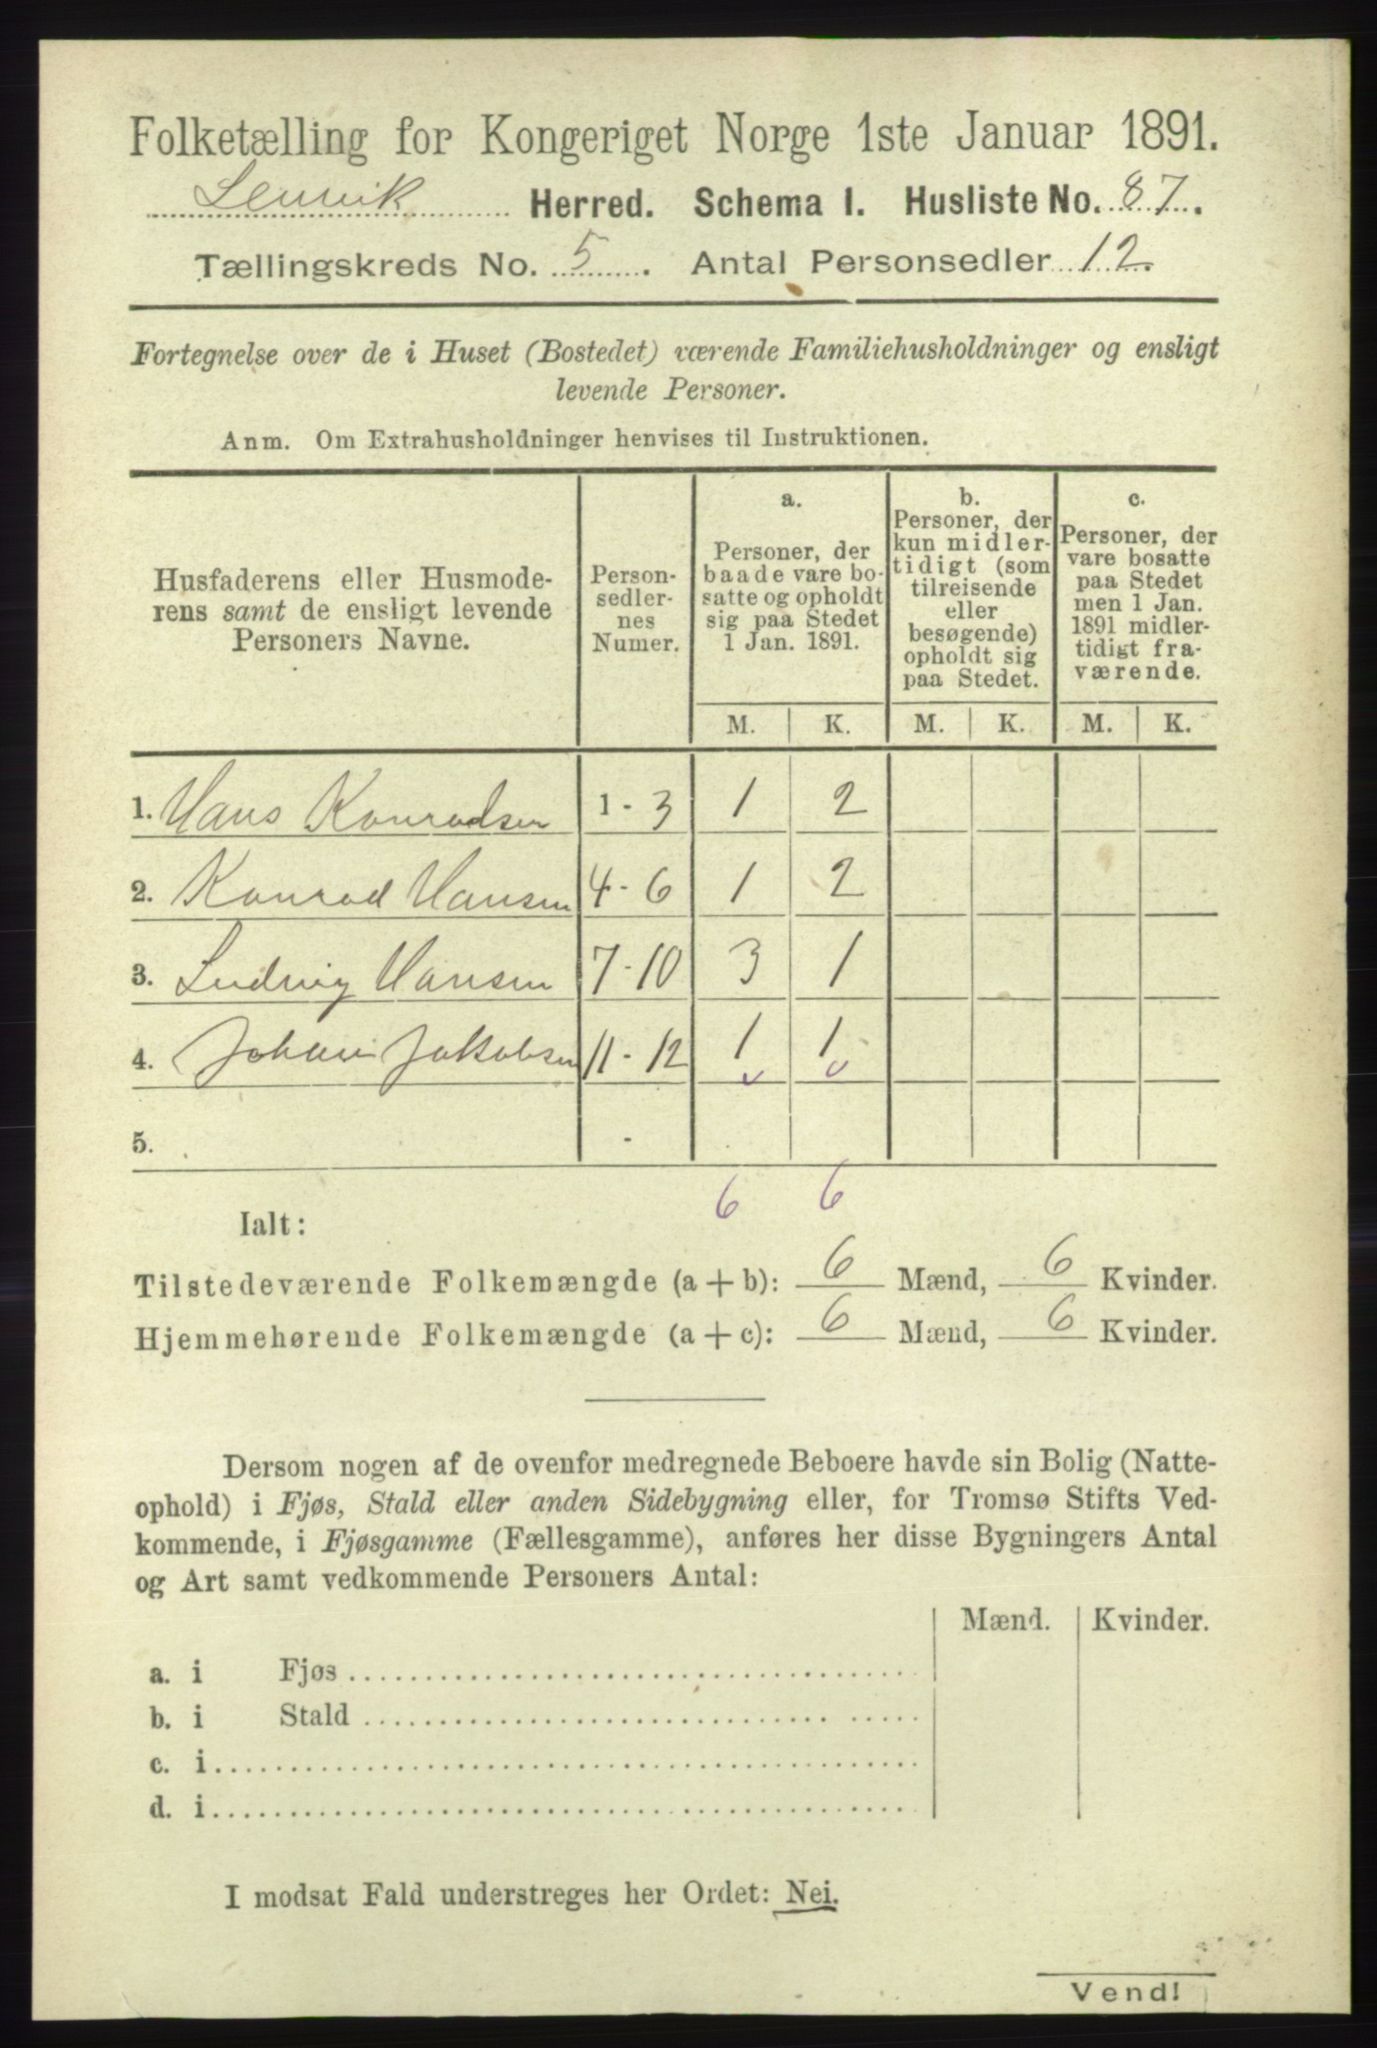 Folketælling for Kongeriget Norge 1ste Januar 1891.
Lenvik Herred. Schema I. Husliste No. 87.
Tællingskreds No. 5. Antal Personsedler 12.
Fortegnelse over de i Huset (Bostedet) værende Familiehusholdninger og ensligt
levende Personer.
Anm. Om Extrahusholdninger henvises til Instruktionen.
Husfaderens eller Husmode-
rens samt de ensligt levende
Personers Navne.
Person-
sedler-
nes
Numer.
a.
Personer, der
baade vare bo-
satte og opholdt
sig paa Stedet
1 Jan. 1891.
b.
Personer, der
kun midler-
tidigt (som
tilreisende
eller
besøgende)
opholdt sig
paa Stedet.
c.
Personer, der
vare bosatte
paa Stedet
men 1 Jan.
1891 midler-
tidigt fra-
værende.
M. K. M. K. M. K.
1. Hans Konradsen 1 - 3 1 2
2. Konrad Hansen 4 - 6 1 2
3. Ludvig Hansen 7 - 10 3 1
4. Johan Jakobsen 11 - 12 1 1
5. -
6 6
Ialt:
Tilstedeværende Folkemængde (a + b): 6 Mænd, 6 Kvinder.
Hjemmehørende Folkemængde (a + c): 6 Mænd, 6 Kvinder.
Dersom nogen af de ovenfor medregnede Beboere havde sin Bolig (Natte-
ophold) i Fjøs, Stald eller anden Sidebygning eller, for Tromsø Stifts Ved-
kommende, i Fjøsgamme (Fællesgamme), anføres her disse Bygningers Antal
og Art samt vedkommende Personers Antal:
Mænd. Kvinder.
a. i Fjøs
b. i Stald
c. i
d. i
I modsat Fald understreges her Ordet: Nei.
Vend!